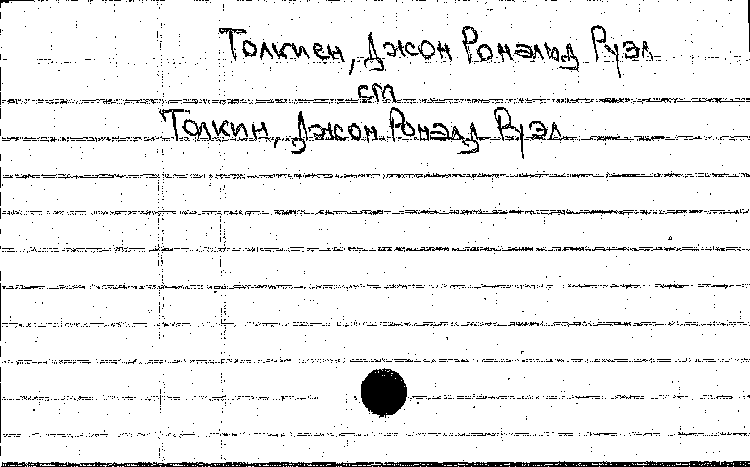 Толкиен, Джон Рональд Руэл
см
Толкин, Джон Роналд Руэл